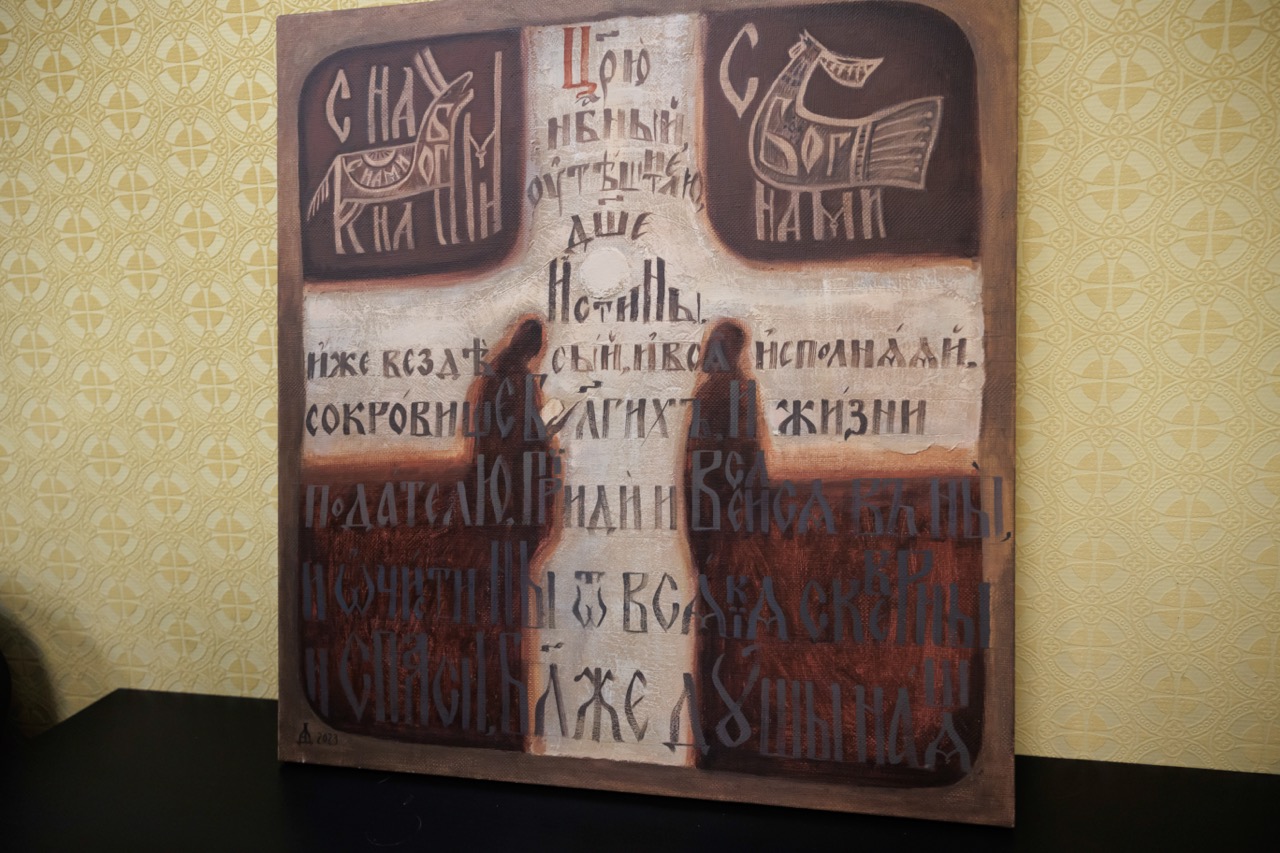 С НА
С НАМИ БОГ
С
БОГ
НАМИ
Цр҃ю̀
нб҃ный,
дш҃е
И҆стиНы.
и҆́же вездѣ̀ сы́й, и҆ всѧ̑ и҆сполнѧ́ѧй,
сокро́вище бл҃гихъ, и҆ жи́зни
подателю, прїиди̂ и вселисѧ въ ны̀,
и ѡчисти ны ѿ всѧкїѧ скверны
и спаси, бл҃же дꙋшы нашѧ
2021